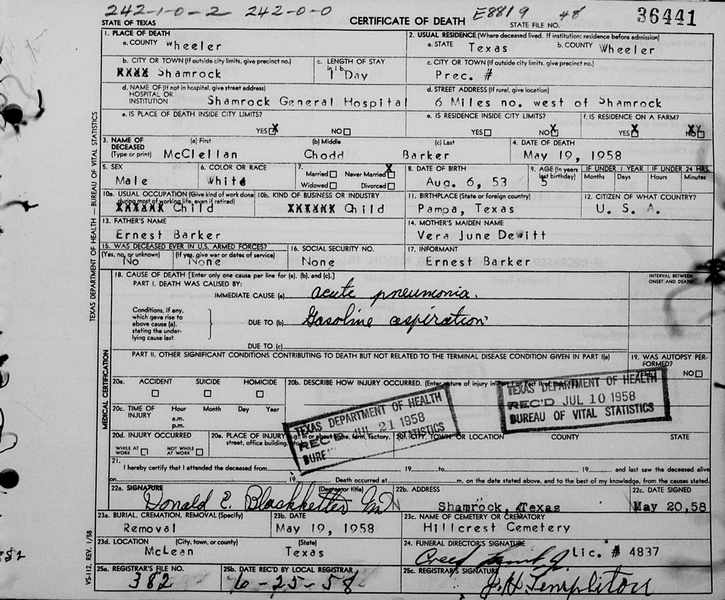 242-1-0-2 242-0-0 E8819 48
STATE OF TEXAS CERTIFICATE OF DEATH STATE FILE NO. 36441
1. PLACE OF DEATH 2. USUAL RESIDENCE (Where deceased lived. If institution: residence before admission)
a. COUNTY Wheeler a. STATE Texas b. COUNTY Wheeler
b. CITY OR TOWN (If outside city limits, give precinct no.) c. LENGTH OF STAY c. CITY OR TOWN (If outside city limits, give precinct no.)
XXXX Shamrock 1 Day Prec. #
d. NAME OF (If not in hospital, give street address) d. STREET ADDRESS (If rural, give location)
HOSPITAL OR
INSTITUTION Shamrock General Hospital 6 Miles no. west of Shamrock
e. IS PLACE OF DEATH INSIDE CITY LIMITS? e. IS RESIDENCE INSIDE CITY LIMITS? f. IS RESIDENCE ON A FARM?
YES X NO YES NO X YES NO
3. NAME OF (a) First (b) Middle (c) Last 4. DATE OF DEATH
DECEASED
(Type or print) McClellan Chodd Barker May 19, 1958
5. SEX 6. COLOR OR RACE 7. Married Never Married X 8. DATE OF BIRTH 9. AGE (in years last birthday) IF UNDER 1 YEAR IF UNDER 24 HRS.
Months Days Hours Minutes
Male White Widowed Divorced Aug. 6, 53 5
10a. USUAL OCCUPATION (Give kind of work done 10b. KIND OF BUSINESS OR INDUSTRY 11. BIRTHPLACE (State or foreign country) 12. CITIZEN OF WHAT COUNTRY?
during most of working life, even if retired)
XXXXXX Child XXXXXX Child Pampa, Texas U. S. A.
13. FATHER'S NAME 14. MOTHER'S MAIDEN NAME
Ernest Barker Vera June Dewitt
15. WAS DECEASED EVER IN U.S. ARMED FORCES? 16. SOCIAL SECURITY NO. 17. INFORMANT
(Yes, no, or unknown) (If yes, give war or dates of service)
No None None Ernest Barker
18. CAUSE OF DEATH [Enter only one cause per line for (a), (b), and (c).] INTERVAL BETWEEN
ONSET AND DEATH
PART I. DEATH WAS CAUSED BY:
IMMEDIATE CAUSE (a) acute pneumonia.
Conditions, if any,
which gave rise to
above cause (a),
stating the under-
lying cause last
DUE TO (b) Gasoline aspiration
DUE TO (c)
PART II. OTHER SIGNIFICANT CONDITIONS CONTRIBUTING TO DEATH BUT NOT RELATED TO THE TERMINAL DISEASE CONDITION GIVEN IN PART I(a) 19. WAS AUTOPSY PER-
FORMED?
NO
20a. ACCIDENT SUICIDE HOMICIDE 20b. DESCRIBE HOW INJURY OCCURRED.
TEXAS DEPARTMENT OF HEALTH
REC'D JUL 10 1958
BUREAU OF VITAL STATISTICS
TEXAS DEPARTMENT OF HEALTH
REC'D JUL 21 1958
STATISTICS
20c. TIME OF Hour Month Day Year
INJURY a.m.
p.m.
20d. INJURY OCCURRED 20e. PLACE OF INJURY 20f. CITY, TOWN OR LOCATION COUNTY STATE
WHILE AT WORK NOT WHILE AT WORK
21. I hereby certify that I attended the deceased from 19 to 19 and last saw the deceased alive
on Death occurred at m. on the date stated above, and to the best of my knowledge, from the causes stated.
22a. SIGNATURE (Degree or title) 22b. ADDRESS 22c. DATE SIGNED
Donald E. Blackketter MD Shamrock, Texas May 20,58
23a. BURIAL, CREMATION, REMOVAL (Specify) 23b. DATE 23c. NAME OF CEMETERY OR CREMATORY
Removal May 19, 1958 Hillcrest Cemetery
23d. LOCATION (City, town, or county) (State) 24. FUNERAL DIRECTOR'S SIGNATURE
McLean Texas Lic. # 4837
25a. REGISTRAR'S FILE NO. 25b. DATE REC'D BY LOCAL REGISTRAR 25c. REGISTRAR'S SIGNATURE
382 6-25-58 J.H. Templeton
TEXAS DEPARTMENT OF HEALTH — BUREAU OF VITAL STATISTICS
MEDICAL CERTIFICATION
VS-112, REV. 1/58